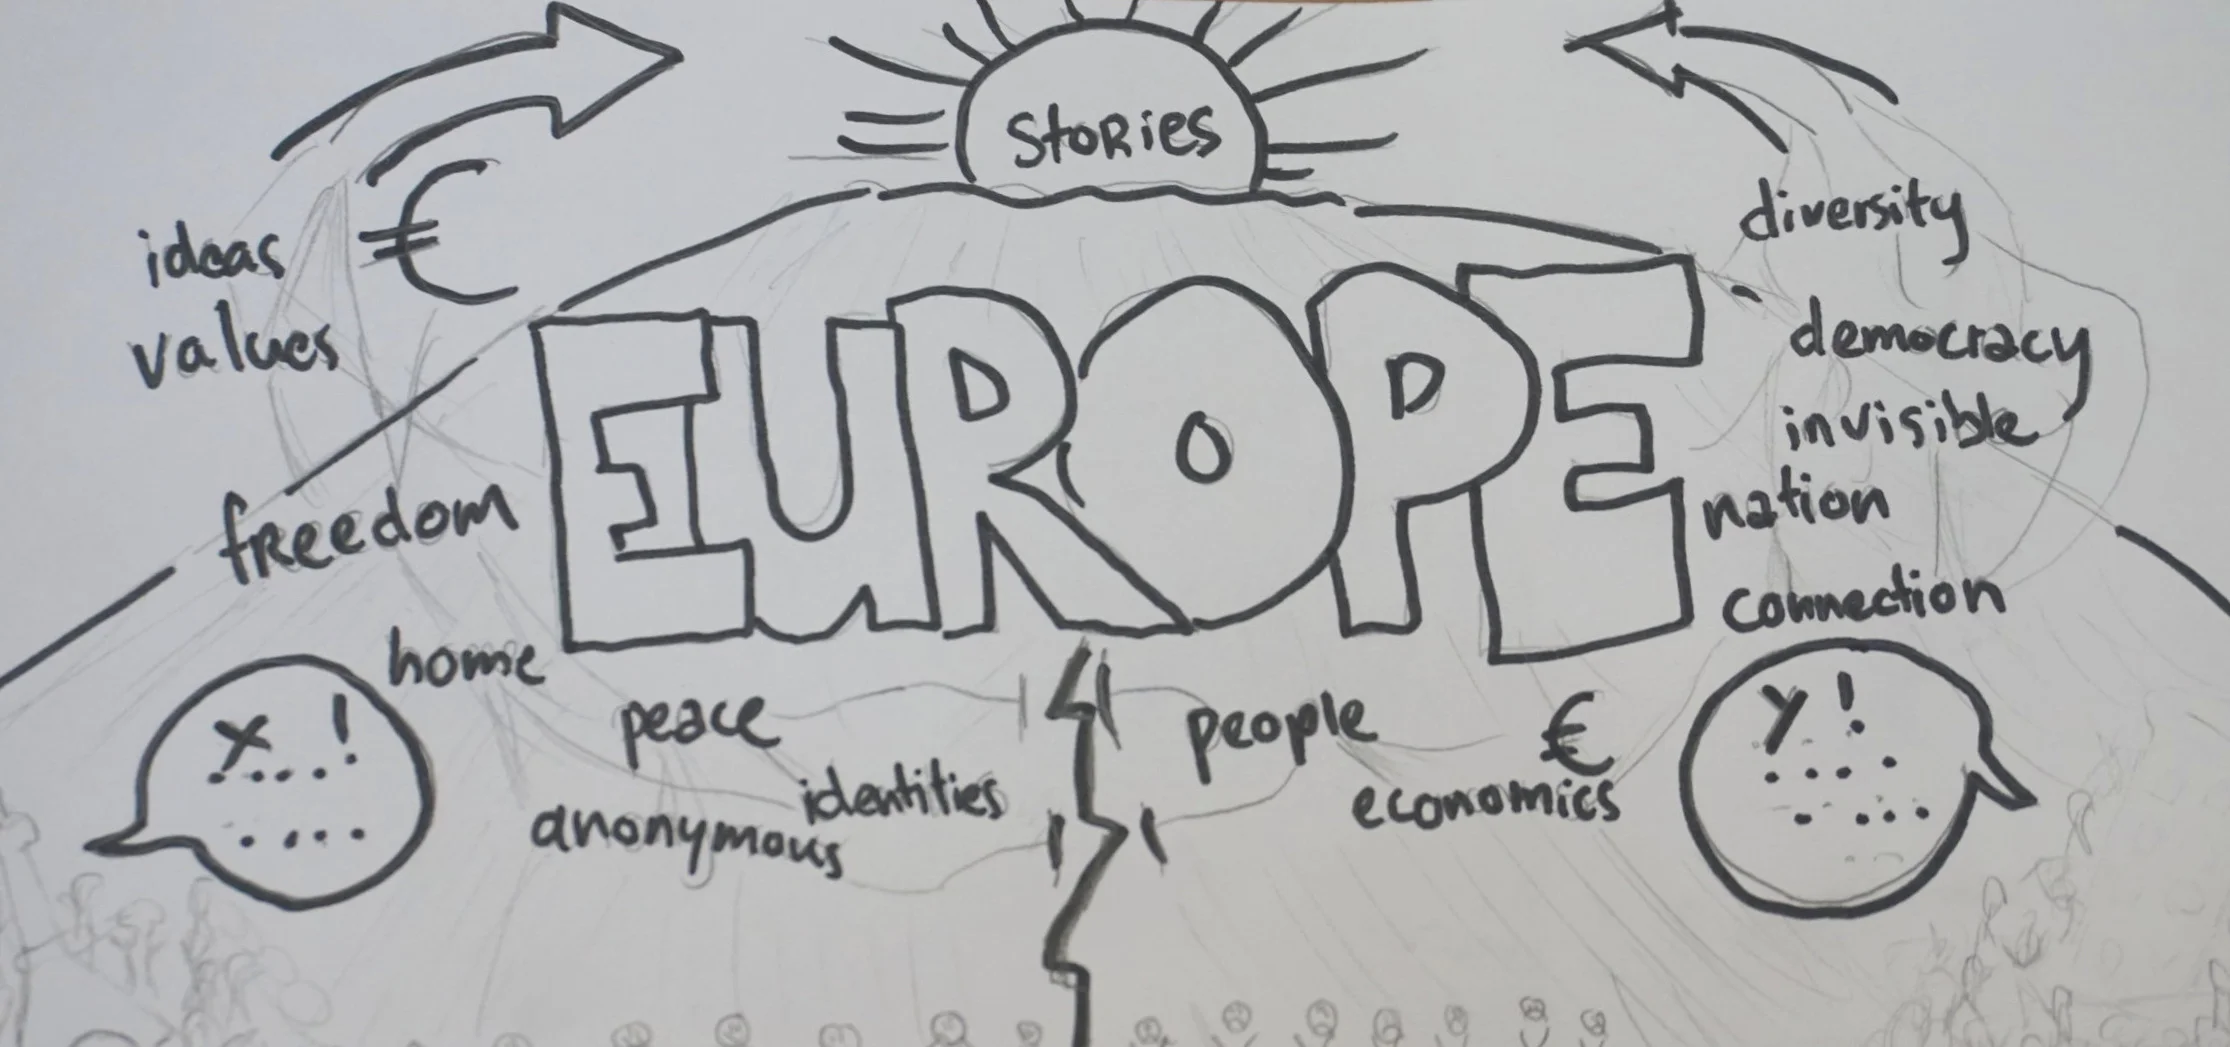 stories
€
ideas
values
diversity
EUROPE
democracy
invisible
nation
freedom
connection
home
peace
people
€
x !
y !
identities
anonymous
economics